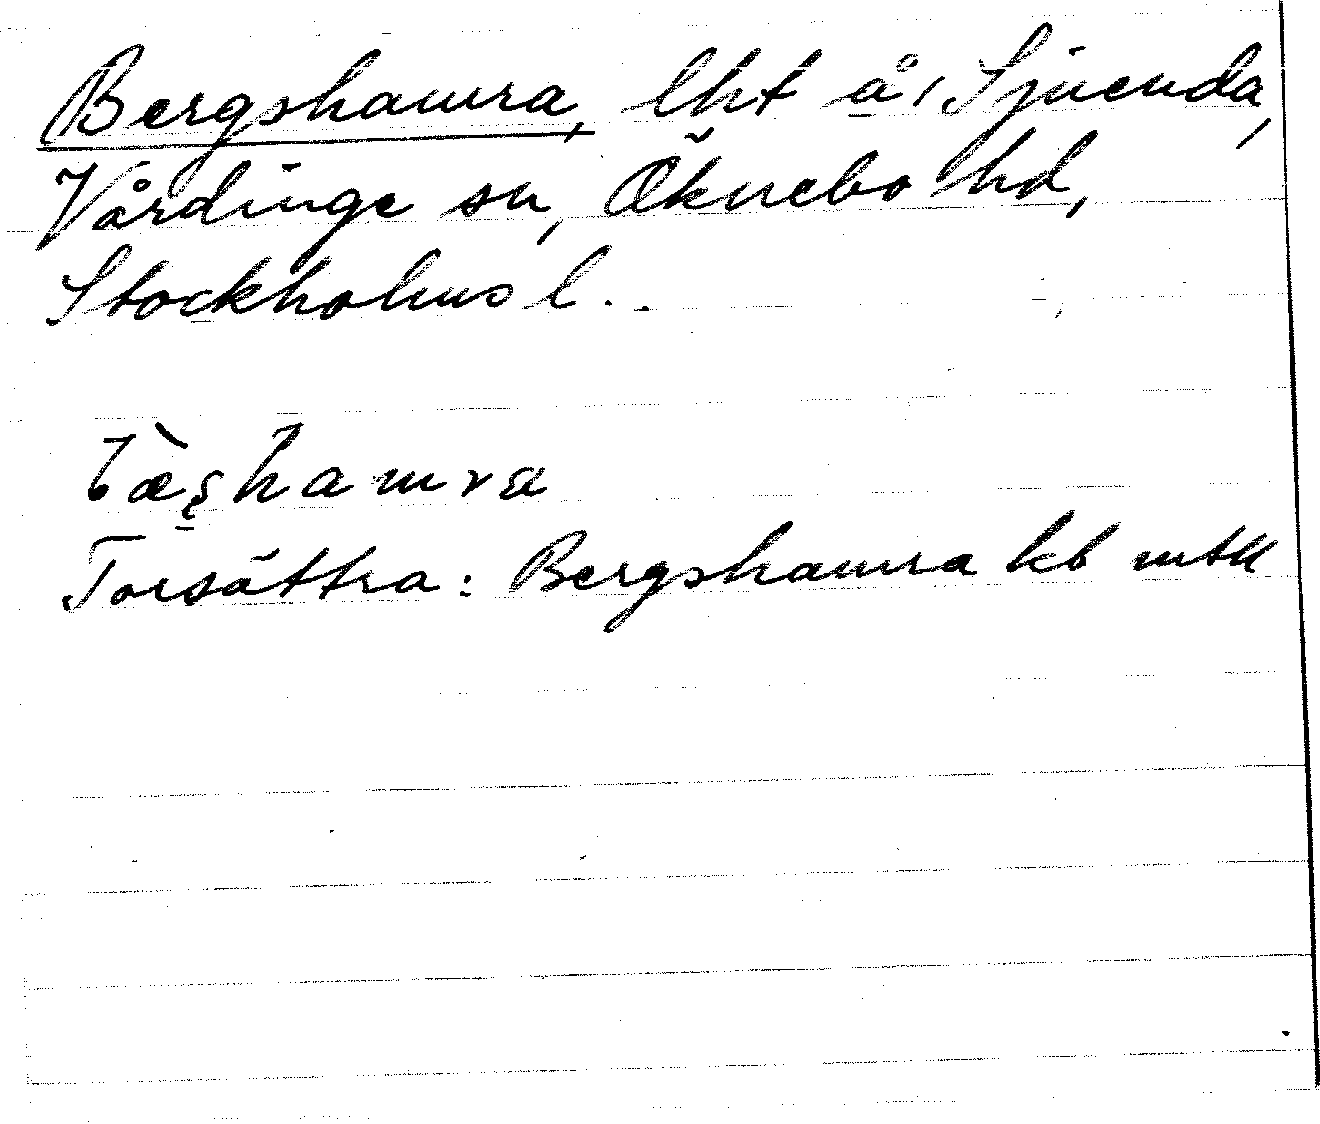 Bergshamra, lht å, Sjuenda,
Vårdinge sn, Öknebo hd,
Stockholms l..
bæ̀ʂhamra
Torsättra: Bergshamra kb mtll